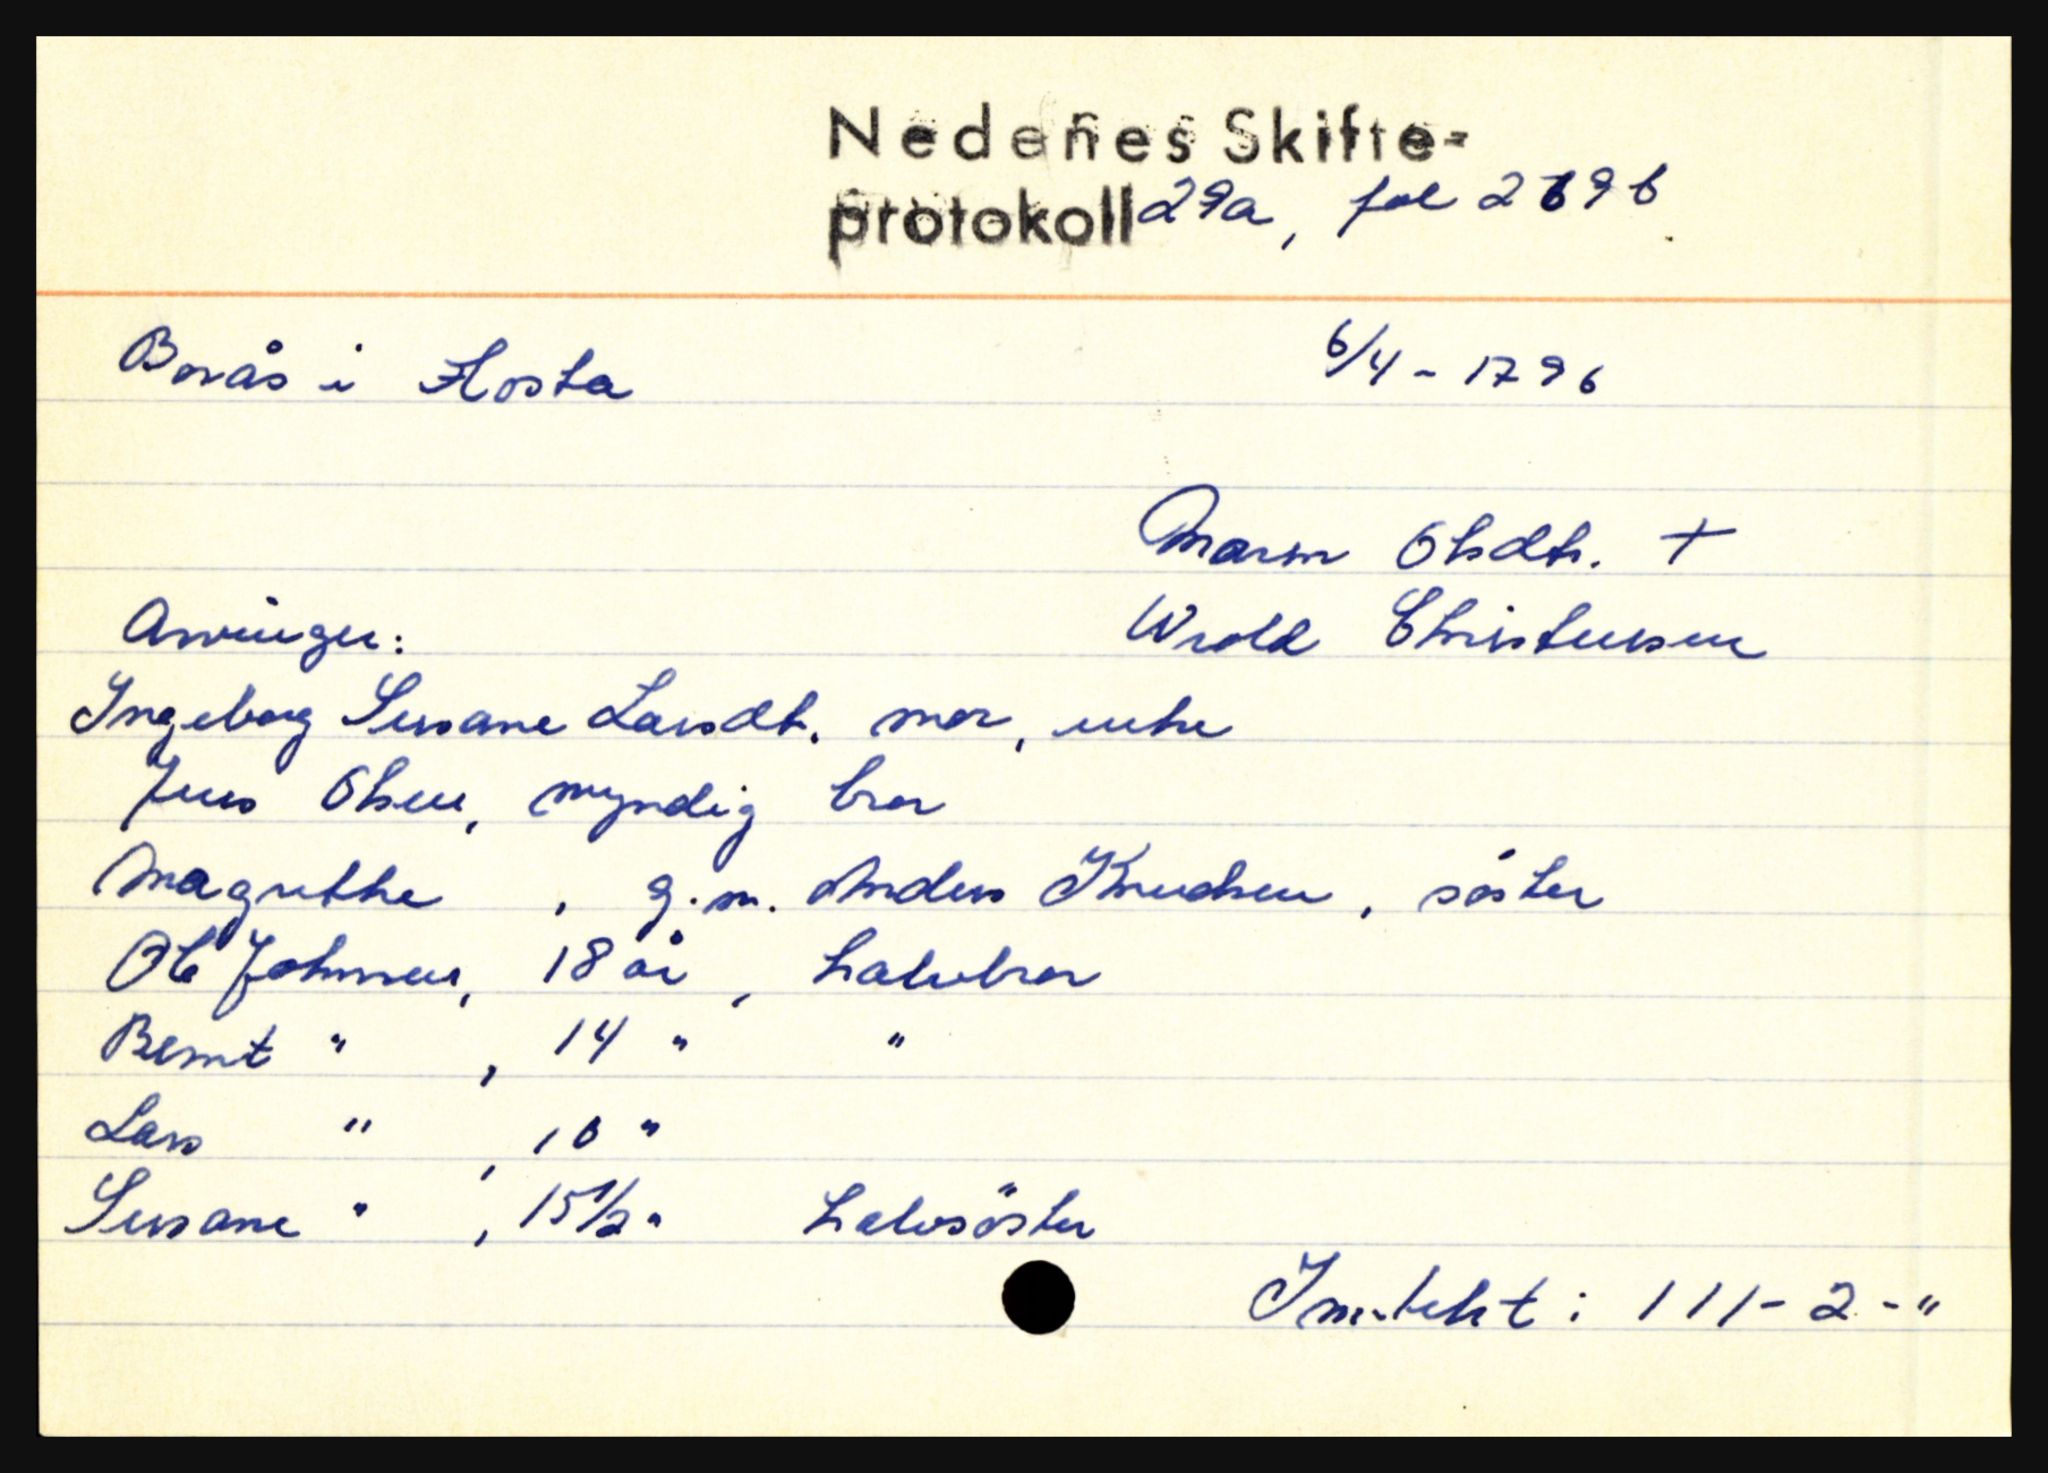 Nedenes Skifte-
protokoll 29a, fol 269b
Borås i Hosta
6/4 - 1796
Maren Olsdtr. +
Wrold Christensen
Arvinger:
Ingeborg Susane Larsdt. mor, enke
Jens Olsen, myndig bror
Magrethe , g.m. Anders Knudsen, søster
Ole Johnsen, 18 år, halvbror
Bernt " , 14 " "
Lars " , 10 "
Susane " , 15 1/2 " halvsøster
Inntekt: 111 - 2 - "